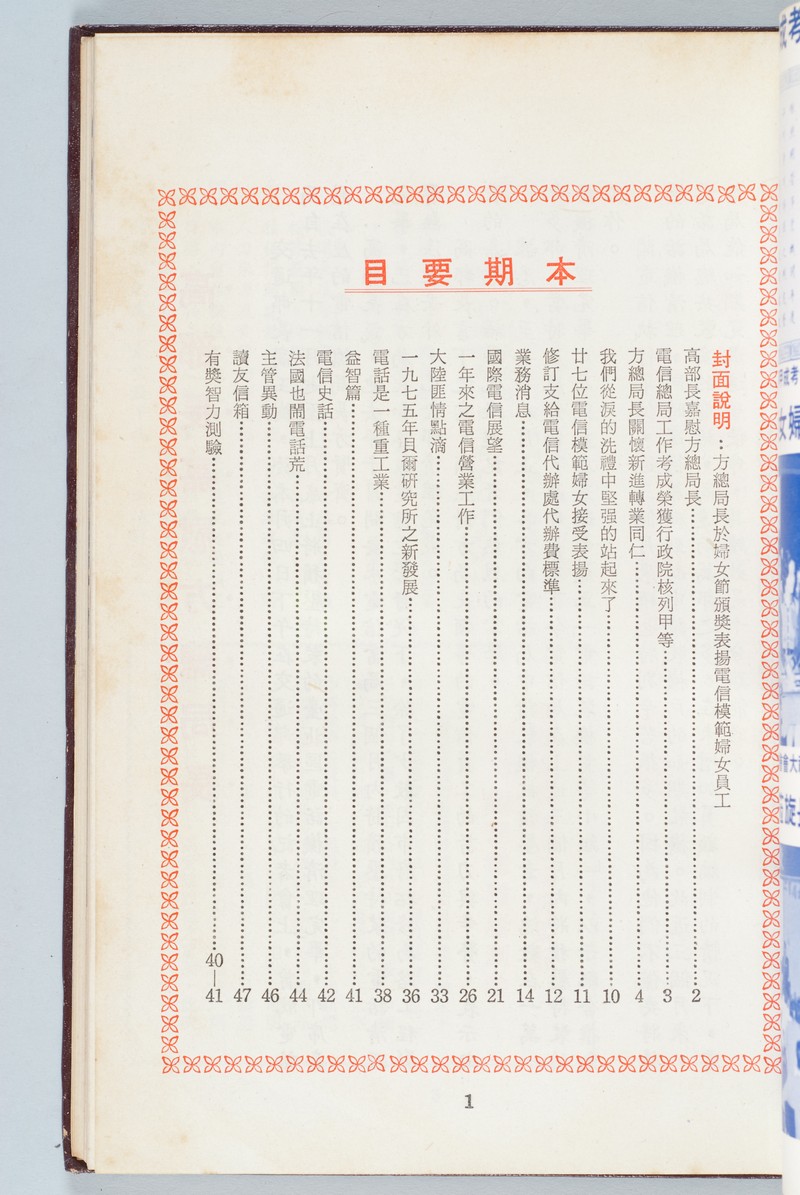 本期要目
封面說明：方總局長於婦女節頒獎表揚電信模範婦女員工
高部長嘉慰方總局長……2
電信總局工作考成榮獲行政院核列甲等……3
方總局長關懷新進轉業同仁……4
我們從淚的洗禮中堅强的站起來了……10
廿七位電信模範婦女接受表揚……11
修訂支給電信代辦處代辦費標準……12
業務消息……14
國際電信展望……21
一年來之電信營業工作……26
大陸匪情點滴……33
一九七五年貝爾研究所之新發展……36
電話是一種重工業……38
益智篇……41
電信史話……42
法國也鬧電話荒……44
主管異動……46
讀友信箱……47
有獎智力測驗……40—41
1